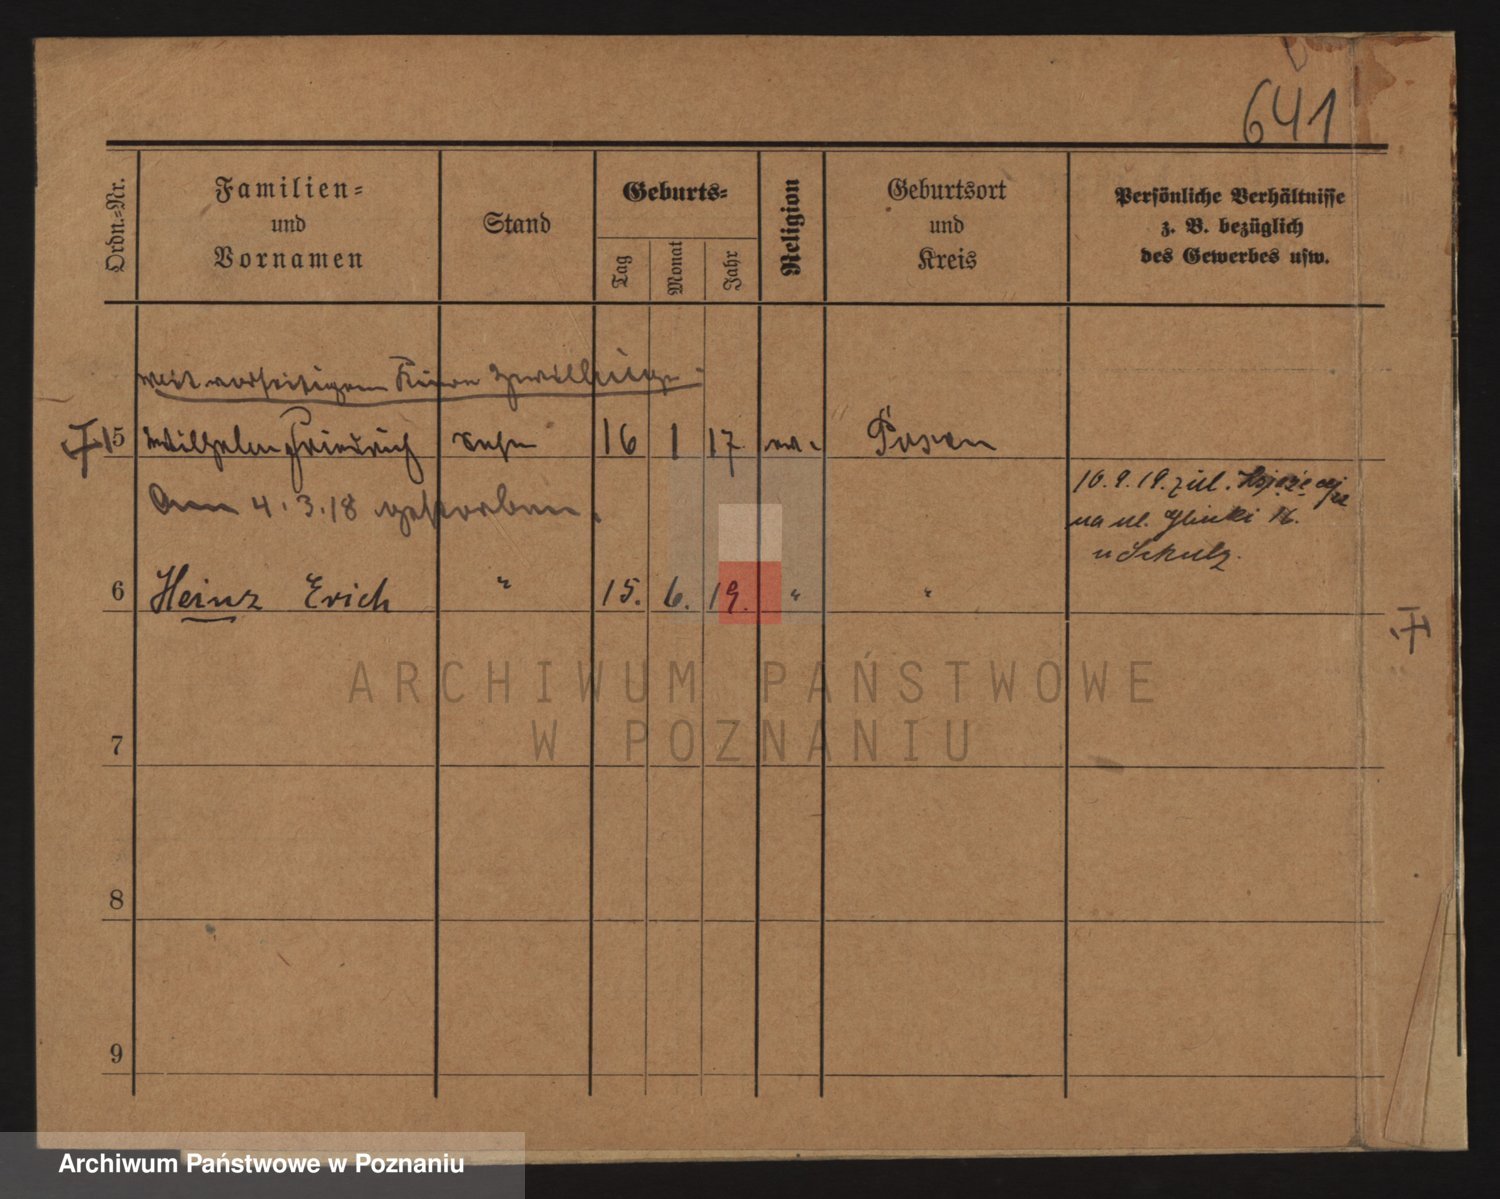 641
Ordn.-Nr.
Familien-
und
Vornamen
Stand
Geburts-
Tag
Monat
Jahr
Religion
Geburtsort
und
Kreis
Persönliche Verhältnisse
z. B. bezüglich
des Gewerbes usw.
vorseitigem Zwillinge
5 Wilhelm Friedrich Sohn 16 1 17 ev. Posen
Am 4.3.18 gestorben.
10.9.19. zul.
na ul. Glinki 16.
u Schulz.
6 Heinz Erich " 15. 6. 19. " "
7
8
9
ARCHIWUM PAŃSTWOWE
W POZNANIU
Archiwum Państwowe w Poznaniu